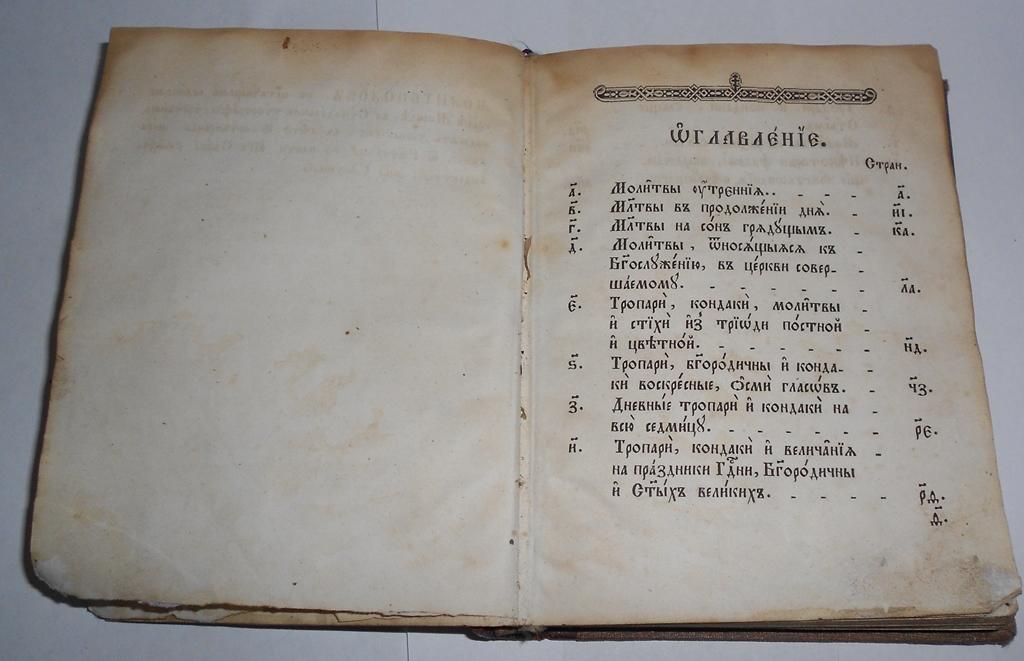 Ѡ҆ГЛАВЛЕ́НЇЕ.
Стран.
а҃. Моли̑твы ᲂу҆́треннїѧ.. - - - а҃.
в҃. Мл҃твы въ продолже́нїи днѧ̀. - и҃і.
г҃. Мл҃твы на со́нъ грѧдꙋ́щымъ. - к҃а.
д҃. Моли̑твы, ѿносѧ́щыѧсѧ къ -
Бг҃ослꙋже́нїю, въ це́ркви совер- -
ша́емомꙋ. - - - - - - л҃а.
є҃. Тропарѝ, кондакѝ, моли̑твы -
и҆ стїхѝ и҆з̾ трїѡ́ди по́стной -
и҆ цвѣ́тной. - - - - - - н҃д.
ѕ҃. Тропарѝ, бг҃оро́дичны и҆ конда- -
кѝ воскре́сные, ѻ҆смѝ гласѡ́въ. - ч҃з.
з҃. Дневны́е тропарѝ и҆ кондакѝ на -
всю̀ седми́цꙋ. - - - - - - р҃е.
и҃. Тропарѝ, кондакѝ и҆ велича̑нїѧ -
на пра́здники Гдⷭ҇ни, Бг҃оро́дичны
и҆ Ст҃ы́хъ вели́кихъ. - - - -